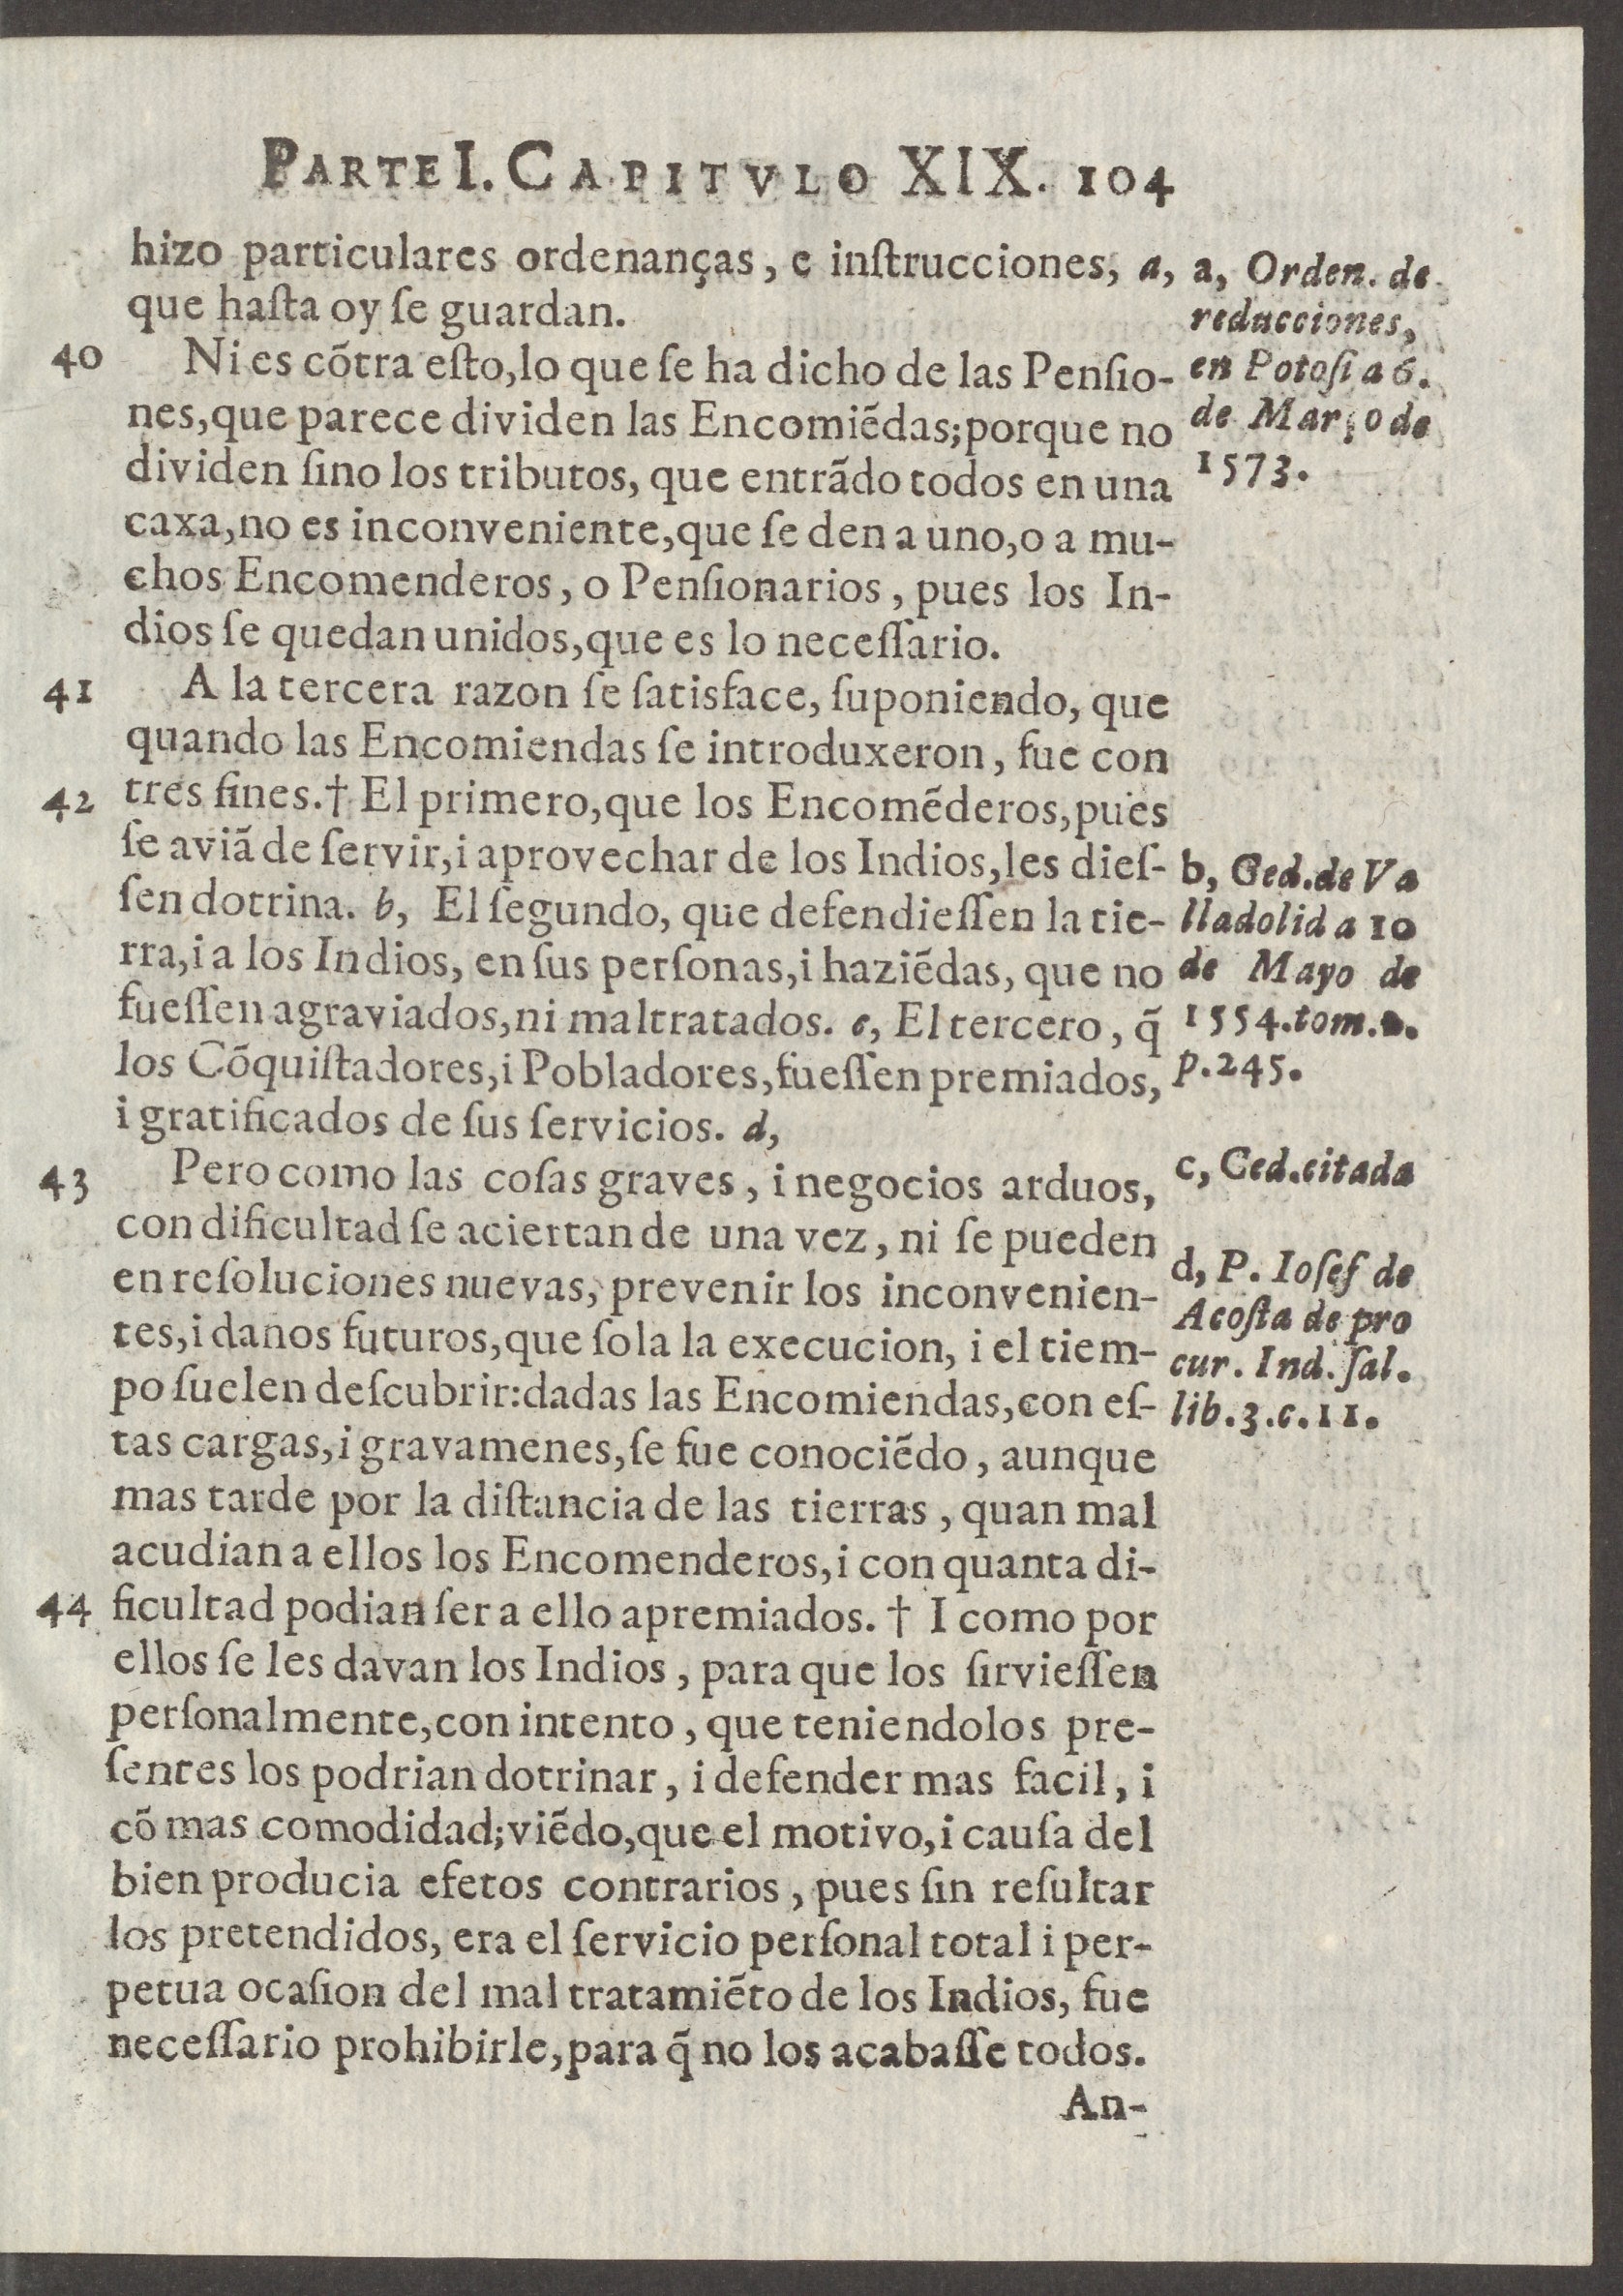 PARTE I. CAPITVLO XIX. 104
hizo particulares ordenanças, e inſtrucciones, a,
que haſta oy ſe guardan.
40 Ni es cõtra eſto, lo que ſe ha dicho de las Penſio-
nes, que parece dividen las Encomiẽdas; porque no
dividen ſino los tributos, que entrãdo todos en una
caxa, no es inconveniente, que ſe den a uno, o a mu-
chos Encomenderos, o Penſionarios, pues los In-
dios ſe quedan unidos, que es lo neceſſario.
41 A la tercera razon ſe ſatisface, ſuponiendo, que
quando las Encomiendas ſe introduxeron, fue con
42 tres fines.† El primero, que los Encomẽderos, pues
ſe aviã de ſervir, i aprovechar de los Indios, les dieſ-
ſen dotrina. b, El ſegundo, que defendieſſen la tie-
rra, i a los Indios, en ſus perſonas, i haziẽdas, que no
fueſſen agraviados, ni maltratados. c, El tercero, q̃
los Cõquiſtadores, i Pobladores, fueſſen premiados,
i gratificados de ſus ſervicios. d,
43 Pero como las coſas graves, i negocios arduos,
con dificultad ſe aciertan de una vez, ni ſe pueden
en reſoluciones nuevas, prevenir los inconvenien-
tes, i danos futuros, que ſola la execucion, i el tiem-
po ſuelen deſcubrir: dadas las Encomiendas, con eſ-
tas cargas, i gravamenes, ſe fue conociẽdo, aunque
mas tarde por la diſtancia de las tierras, quan mal
acudian a ellos los Encomenderos, i con quanta di-
44 ficultad podian ſer a ello apremiados. † I como por
ellos ſe les davan los Indios, para que los ſirvieſſen
perſonalmente, con intento, que teniendolos pre-
ſentes los podrian dotrinar, i defender mas facil, i
cõ mas comodidad; viẽdo, que el motivo, i cauſa del
bien producia efetos contrarios, pues ſin reſultar
los pretendidos, era el ſervicio perſonal total i per-
petua ocaſion del mal tratamiẽto de los Indios, fue
neceſſario prohibirle, para q̃ no los acabaſſe todos.
An-
a, Orden. de
reducciones,
en Potoſi a 6.
de Março de
1573.
b, Ced. de Va
lladolid a 10
de Mayo de
1554. tom.
p. 245.
c, Ced. citada
d, P. Ioſef de
Acoſta de pro
cur. Ind. ſal.
lib. 3. c. 11.